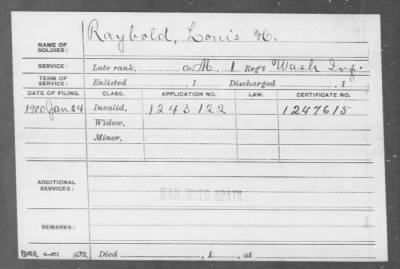 NAME OF SOLDIER: Raybold, Louis H.
SERVICE: Late rank, Co. M, 1 Reg't Wash Inf.
TERM OF SERVICE: Enlisted , 1 Discharged , 1
DATE OF FILING. CLASS. APPLICATION NO. LAW. CERTIFICATE NO.
1900 Jan 24 Invalid, 1243122 1247615
Widow,
Minor,
ADDITIONAL SERVICES:
WAR WITH SPAIN
REMARKS:
Died , 1 , at